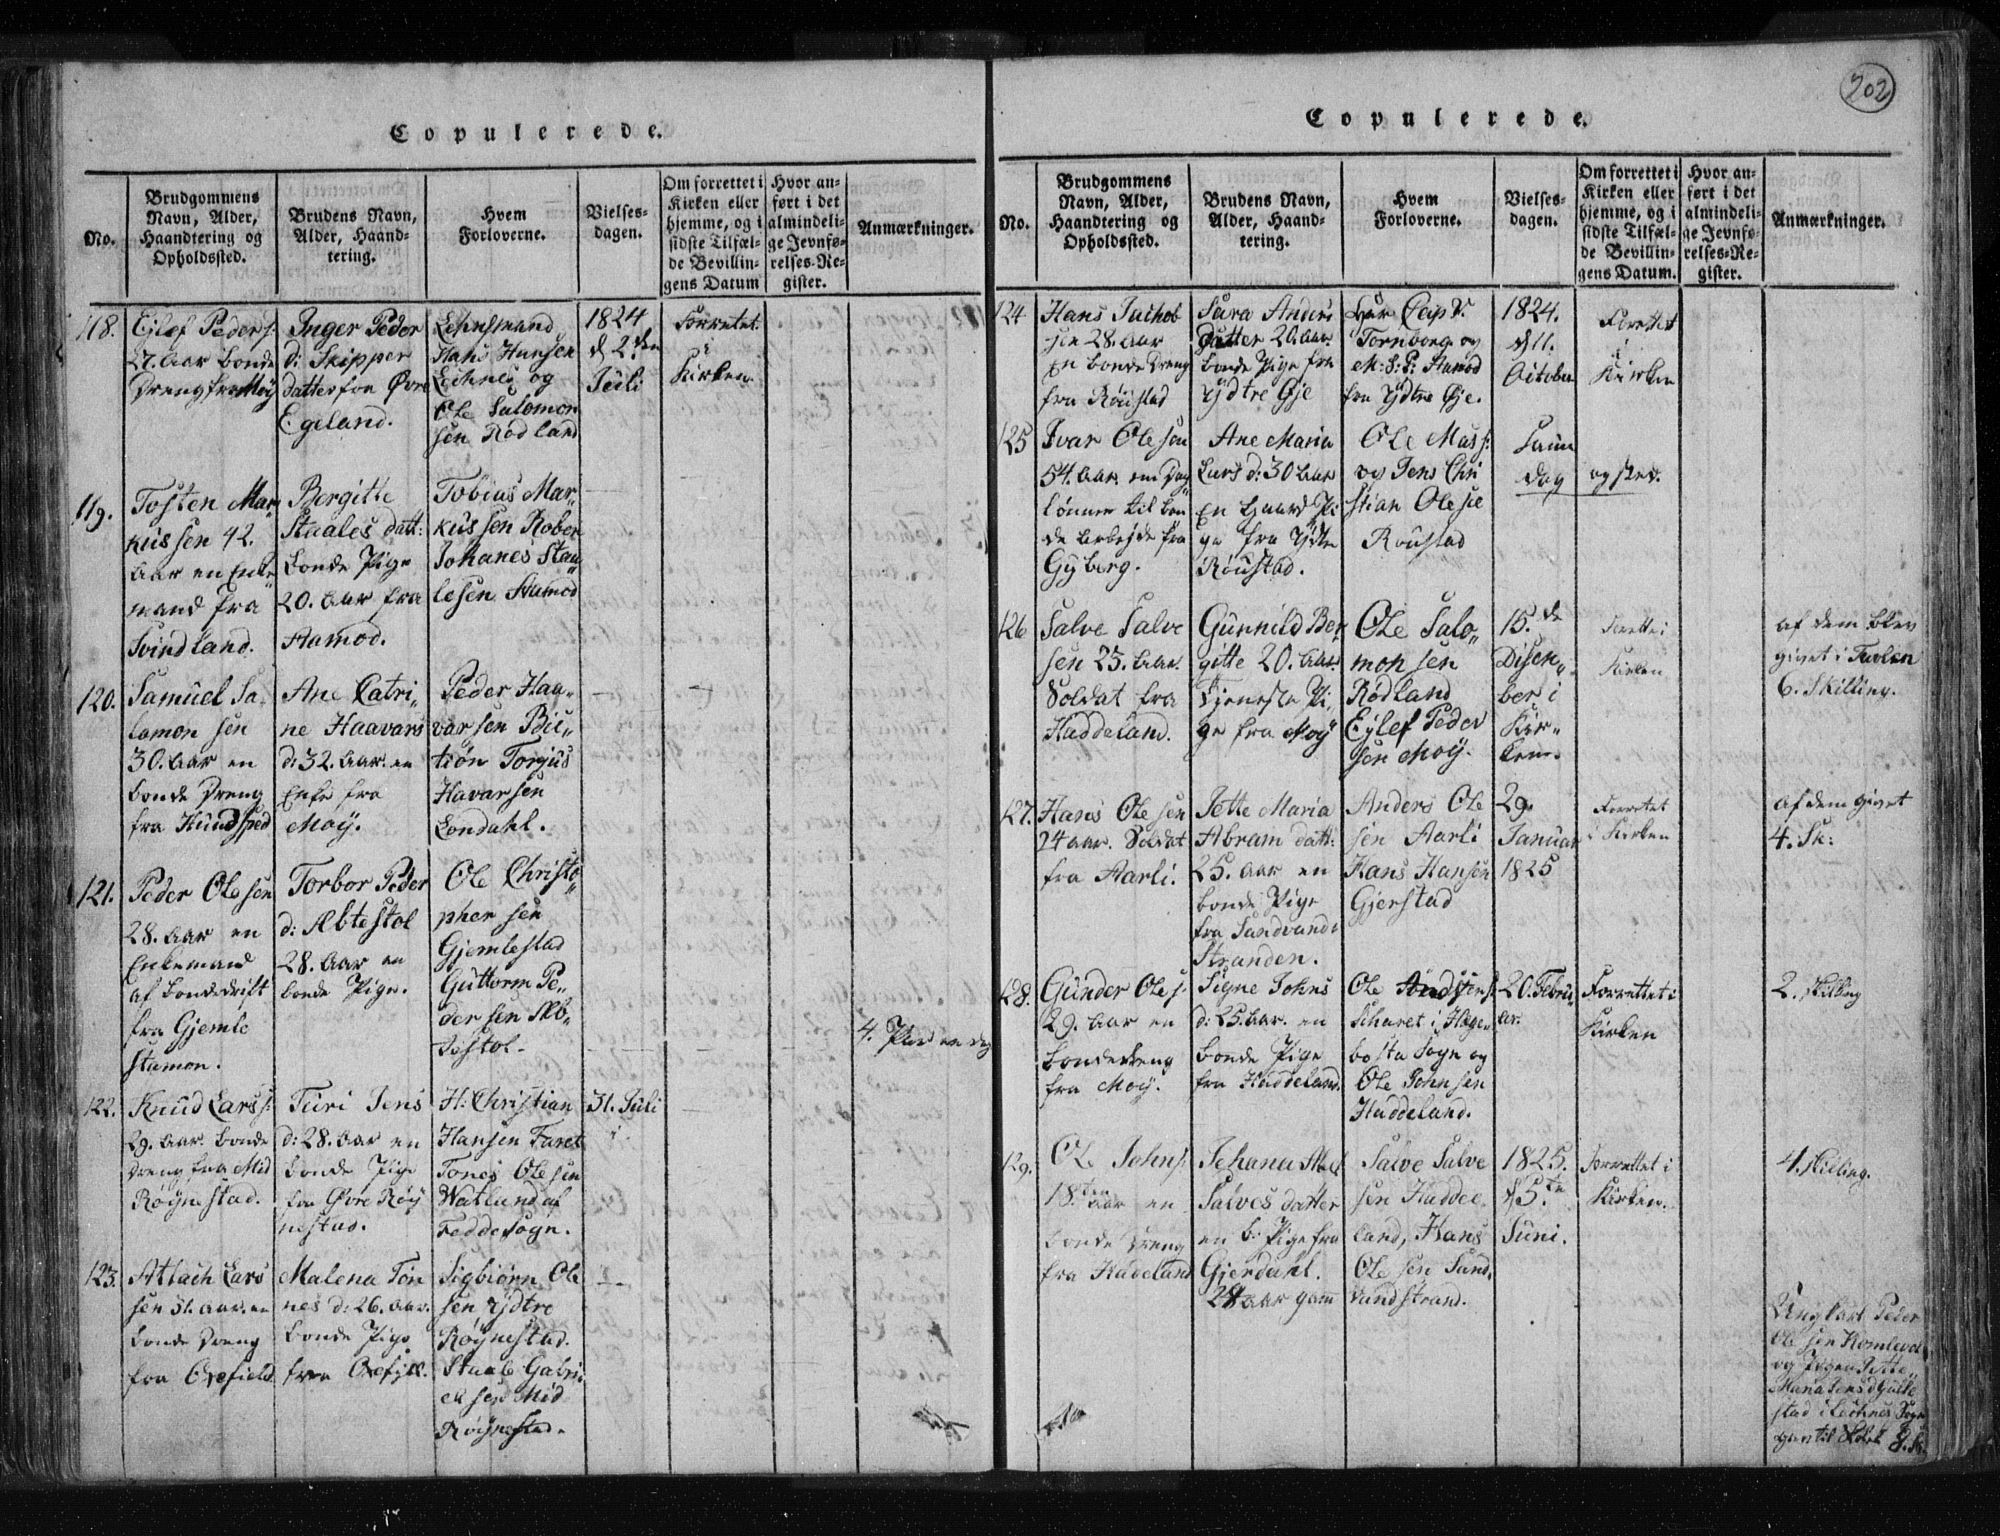 202
Copulerede.
No.
Brudgommens
Navn, Alder,
Haandtering og
Opholdssted.
Brudens Navn,
Alder, Haand-
tering.
Hvem
Forloverne.
Vielses-
dagen.
Om forrettet i
Kirken eller
hjemme, og i
sidste Tilfæl-
de Bevillin-
gens Datum
Hvor an-
ført i det
almindeli-
ge Jevnfø-
relses-Re-
gister.
Anmærkninger.
118.
Ejlef Peders:
27. Aar bonde
Dreng fra Moÿ
Inger Peder
d: Skipper
datter fra Øvre
Egeland.
Lehnsmand
Hans Hansen
Lechnes og
Ole Salomon
sen Rødland
1824
d 2den
Juli
Forretet
i
Kirken
119.
Tosten Mar
kussen 42.
Aar en Enke
mand fra
Svindland.
Bergitte
Staales datt:
bonde Pige
20. Aar fra
Aamod.
Tobias Mar
kussen
Johanes Staa
lesen Aamod
120.
Samuel Sa
lamon sen
30. Aar en
bonde Dreng
fra
Ane Catri
ne Haavars
d: 32. Aar. en
Enke fra
Moÿ.
Peder Haa
varsen
Torjus
Havarsen
Londahl.
121.
Peder Olesen
28. Aar en
Enkemand
af bonde drift
fra Gjemle
stamon.
Torbor Peder
d: Æbtestol
28. Aar en
bonde Pige.
Ole Christo
phersen
Gjemlestad
Guttorm Pe
dersen Æb
testol.
4.
122.
Knud Lars s:
29. Aar. bonde
Dreng fra Mid
Røÿnestad.
Turi Jens
d: 28. Aar en
bonde Pige
fra Øvre Røÿ
nestad.
H: Christian
Hansen Faret
Tones Olesen
Watland af
Fedde Sogn.
31. Juli
123.
Atlach Lars
sen 31. Aar. en
bonde Dreng
fra Oxefield
Malena Tøn
nes d: 26. Aar.
bonde Pige
fra
Sigbiørn Ole
sen Ÿdtre
Røÿnestad.
Staale Gabri
elsen Mid
Røÿnestad.
Copulerede.
No.
Brudgommens
Navn, Alder,
Haandtering og
Opholdssted.
Brudens Navn,
Alder, Haand-
tering.
Hvem
Forloverne.
Vielses-
dagen.
Om forrettet i
Kirken eller
hjemme, og i
sidste Tilfæl-
de Bevillin-
gens Datum.
Hvor an-
ført i det
almindeli-
ge Jevnfø-
relses-Re-
gister.
Anmærkninger.
124
Hans Jachob
sen 28. Aar
en bonde Dreng
fra Røÿstad
Sara Anders
datter 20. Aar
bonde Pige fra
Ÿdtre Øÿe
Herr Capt.
Tornborg og
M: S: P: Aamod
fra Ÿdtre Øÿe.
1824.
d 11.
October
Forrettet
i
Kirken
125
Ivar Olesen
54. Aar. en Dag
lønner til bon
de Arbejde fra
Gÿberg.
Ane Maria
Lars d: 30 Aar
En Gaard Pi
ge fra Ÿdtre
Røustad.
Ole Mass:
og Jens Chri
stian Olesen
Roustad
Samme
Dag
og sted.
126
Salve Salve
sen 25. Aar.
Soldat fra
Haddeland.
Gunnild Ber
gitte 20. Aar.
Tjeneste Pi
ge fra Moÿ
Ole Salo
monsen
Rødland
Ejlef Peder
sen Moÿ.
15.de
Disem
ber i
Kir
ken.
Forrette i
Kirken
af dem blev
givet i Tavlen
6. Skilling.
127.
Hans Olesen
24 aar. Soldat
fra Aarli.
Jette Maria
Abram datt:
25. Aar en
bonde Pige
fra Sandvand
Stranden.
Anders Ole
sen Aarli
Hans Hansen
Gjerstad
29.
Januar
1825
Forretet
i Kirken
af dem givet
4. Sk:
128.
Gunder Oles:
29. Aar en
bondedreng
fra Moÿ.
Signe Johns
d: 25. Aar. en
bonde Pige
fra Haddeland.
Ole
Scharet i Hege
bosta Sogn og
Ole Johnsen
Haddeland.
20. Febru
ar.
Forrettet i
Kirken
2. Skilling
129.
Ole Johns:
18ten Aar en
bonde Dreng
fra Hadeland
Jehana
Salves datter
en b: Pige fra
Gjerdahl.
28 Aar gam̅
Salve Salve
sen Haddel
land, Hans
Olesen Sand
vandstrand.
1825.
d 5.te
Juni.
Forrettet i
Kirken.
4. Skilling.
Ungkarl Peder
Olesen
og Pigen Jette
Maria Jens d
stad i Lechnes Sogn
gav til